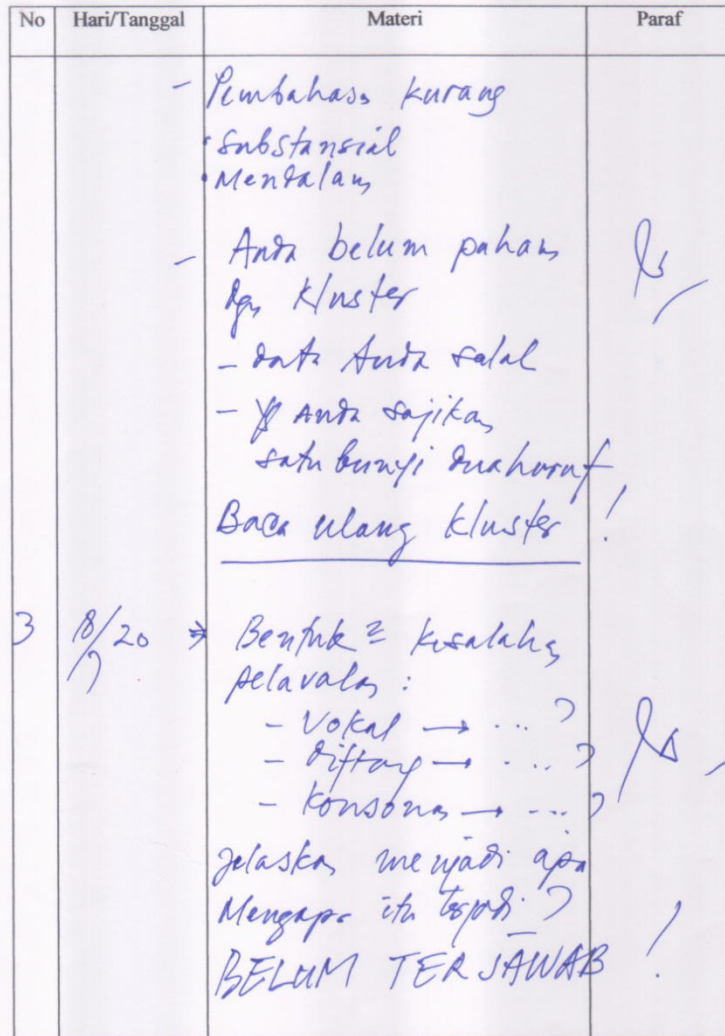 No Hari/Tanggal Materi Paraf
- Pembahasn kurang
• Substansial
• Mendalam
- Anda belum paham
dgn kluster
- data Anda salah
- yg Anda sajikan
satu bunyi dua huruf
Baca ulang kluster !
3 18/7 20 ⇒ Bentuk² kesalahan
pelavalan :
- Vokal → ... ?
- diftong → ... ?
- Konsonan → ... ?
jelaskan menjadi apa
Mengapa itu terjadi ?
BELUM TERJAWAB !